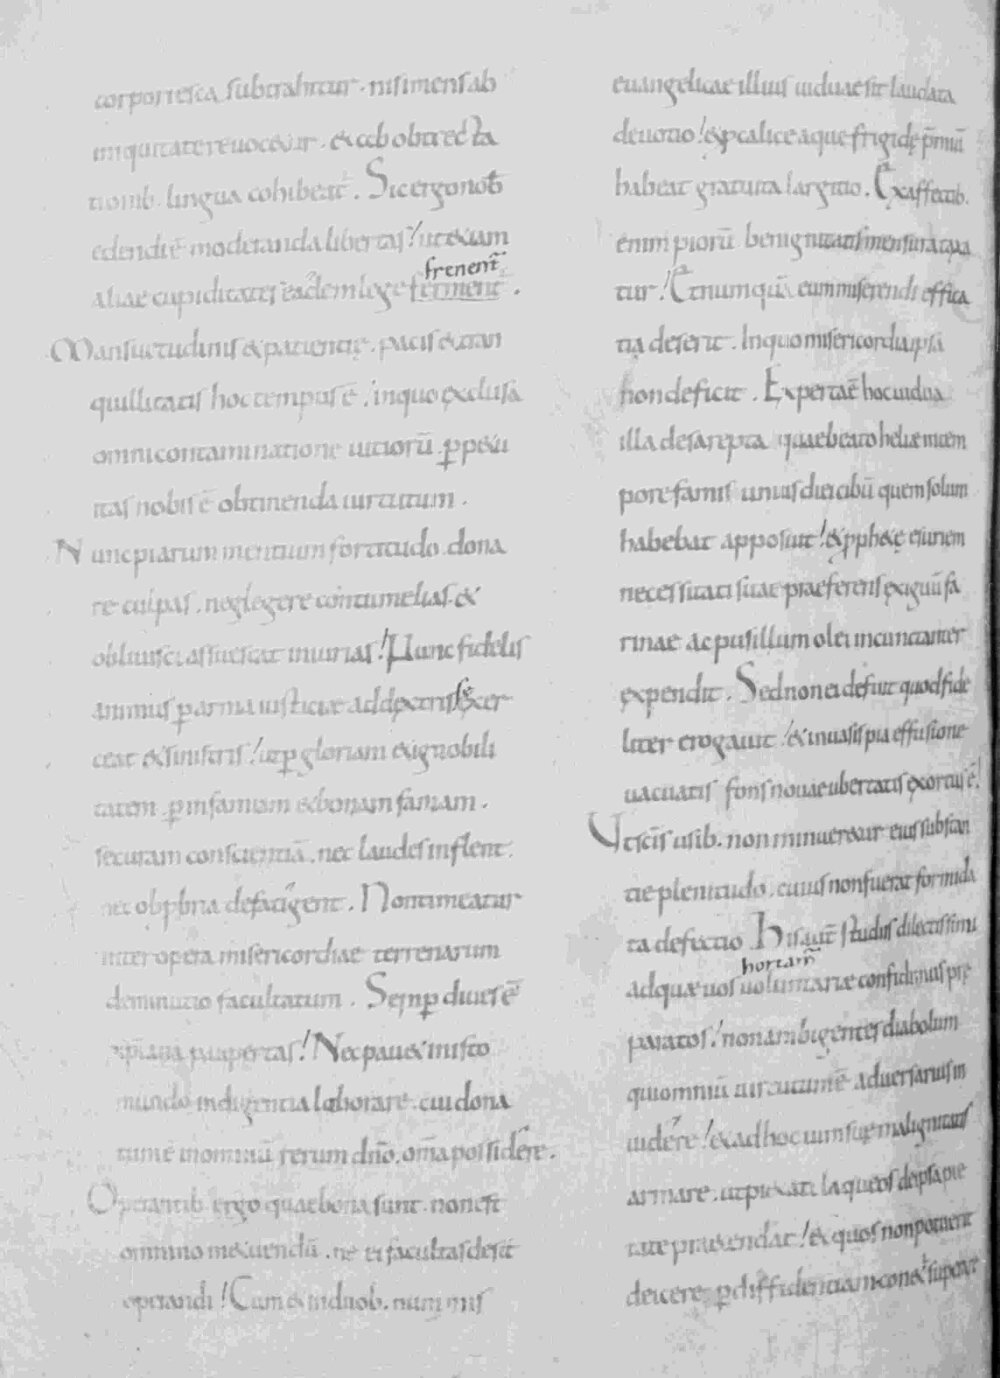 corpori esca subtrahitur · nisi mens ab
iniquitate reuocetur · et ab obtrecta
tionib· lingua cohibeat̄ . Sic ergo nob̄
edendi ē moderanda libertas! ut etiam
frenent̄
aliae cupiditates eadem lege ferment .
Mansuetudinis et patientię . pacis et tran
quillitatis hoc tempus ē . in quo exclusa
omni contaminatione uitiorū . ꝑpetu
itas nobis ē obtinenda uirtutum .
Nunc piarum mentium fortitudo . dona
re culpas . neglegere contumelias . et
obliuisci assuescat iniurias! Nunc fidelis
animus ꝑ arma iustitiae a dextris se exer
ceat et sinistris! ut ꝑ gloriam et ignobili
tatem . ꝑ infamiam et bonam famam .
securam conscientiā . nec laudes inflent .
nec obꝓbria defatigent . Non timeatur
inter opera misericordiae terrenarum
deminutio facultatum . Semꝑ diues ē
xp̄iana paupertas! Nec pauet in isto
mundo indigentia laborare . cui dona
tum ē in omniū rerum dn̄o . om̄a possidere .
Operantib· ergo quae bona sunt . non est
omnino metuendū . ne ei facultas desit
operandi! Cum et in duob· nummis
euangelicae illius uiduae sit laudata
deuotio! et ꝓ calice aquę frigidę p̄miū
habeat gratuita largitio . Ex affectib·
enim piorū benignitatis mensura taxa
tur! Et numquā eum miserendi effica
tia deserit . In quo misericordia ipsa
non deficit . Experta ē hoc uidua
illa de sarepta quae beato heliae in tem
pore famis unius diei cibū quem solum
habebat apposuit! et ꝓphetę eiunem
necessitati suae praeferens exiguū fa
rinae ac pusillum olei incunctanter
expendit . Sed non ei defuit quod fide
liter erogauit! et in uasis pia effusione
uacuatis fons nouae ubertatis exortus ē!
Ut sc̄is usib· non minueretur eius substan
tie plenitudo . cuius non fuerat formida
ta defectio His aut̄ studiis dilectissimi
hortam̄
ad quae uos uoluntariae confidimus prę
paratos! non ambigentes diabolum
qui omniū uirtutum ē aduersarius in
uidere! et ad hoc uim suę malignitatis
armare . ut pietati laqueos de ipsa pie
tate praetendat! et quos non potuerit
deicere ꝑ diffidentiam conetur superare